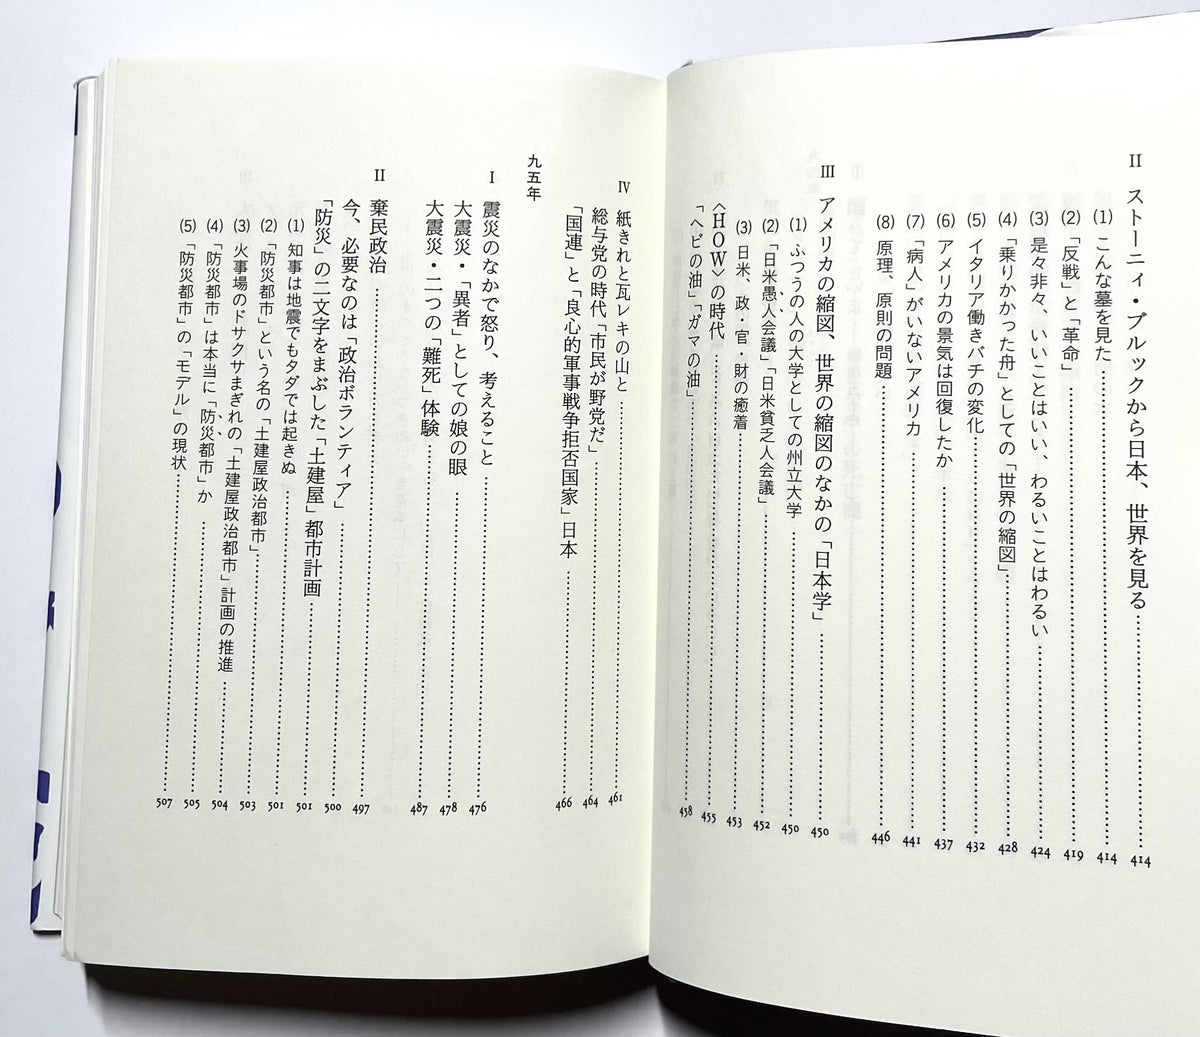 II ストーニィ・ブルックから日本、世界を見る……414
(1) こんな墓を見た……414
(2) 「反戦」と「革命」……419
(3) 是々非々、いいことはいい、わるいことはわるい……424
(4) 「乗りかかった舟」としての「世界の縮図」……428
(5) イタリア働きバチの変化……432
(6) アメリカの景気は回復したか……437
(7) 「病人」がいないアメリカ……441
(8) 原理、原則の問題……446
III アメリカの縮図、世界の縮図のなかの「日本学」……450
(1) ふつうの人の大学としての州立大学……450
(2) 「日米愚人会議」「日米貧乏人会議」……452
(3) 日米、政・官・財の癒着……453
〈HOW〉の時代……455
「ヘビの油」「ガマの油」……458
IV 紙きれと瓦レキの山と……461
総与党の時代「市民が野党だ」……464
「国連」と「良心的軍事戦争拒否国家」日本……466
九五年
I 震災のなかで怒り、考えること……476
大震災・「異者」としての娘の眼……478
大震災・二つの「難死」体験……487
II 棄民政治……497
今、必要なのは「政治ボランティア」……500
「防災」の二文字をまぶした「土建屋」都市計画……501
(1) 知事は地震でもタダでは起きぬ……501
(2) 「防災都市」という名の「土建屋政治都市」……503
(3) 火事場のドサクサまぎれの「土建屋政治都市」計画の推進……504
(4) 「防災都市」は本当に「防災都市」か……505
(5) 「防災都市」の「モデル」の現状……507